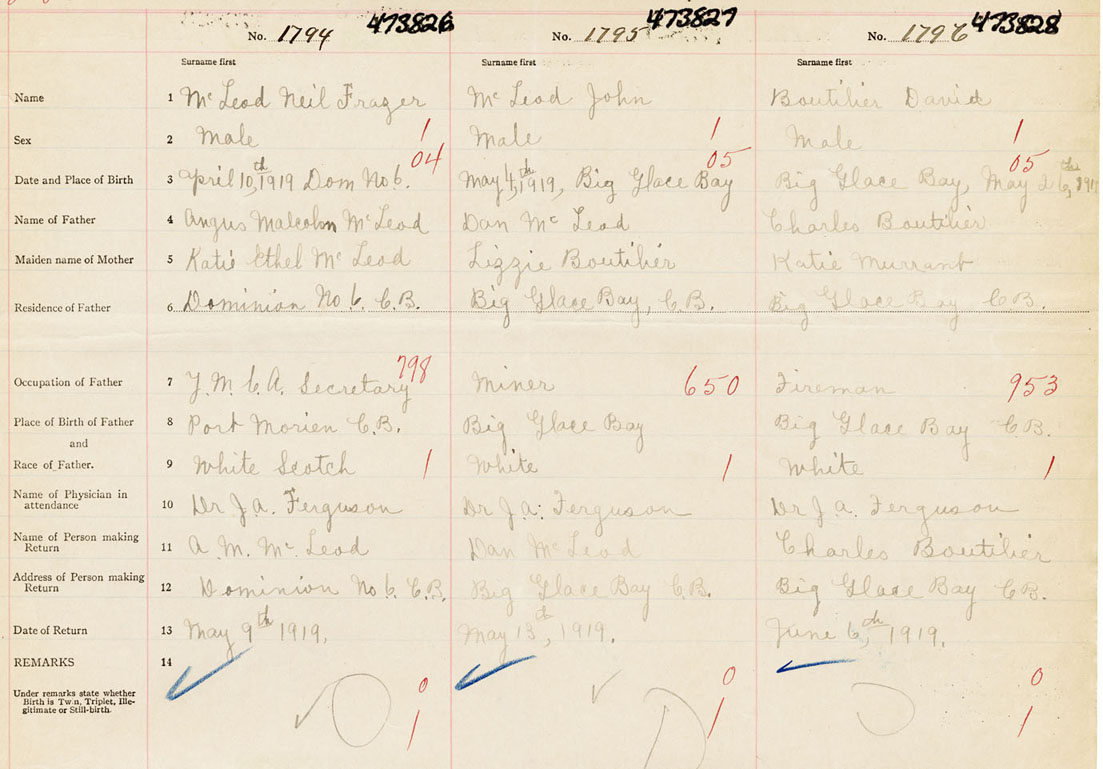 No. 1794 473826 No. 1795 473827 No. 1796 473828
Surname first Surname first Surname first
Name 1 Mc Leod Neil Frazer Mc Leod John Boutilier David
Sex 2 Male 1 Male 1 Male 1
04 05 05
Date and Place of Birth 3 April 10th, 1919 Dom No 6. May 4th, 1919, Big Glace Bay Big Glace Bay, May
Name of Father 4 Angus Malcolm Mc Leod Dan Mc Leod Charles Boutilier
Maiden name of Mother 5 Katie Ethel Mc Leod Lizzie Boutilier Katie Murrant
Residence of Father 6 Dominion No 6. C.B. Big Glace Bay, C.B. Big Glace Bay C.B.
798
Occupation of Father 7 Y.M.C.A. Secretary Miner 650 Fireman 953
Place of Birth of Father 8 Port Morien C.B. Big Glace Bay Big Glace Bay C.B.
and
Race of Father. 9 White Scotch 1 White 1 White 1
Name of Physician in
attendance 10 Dr J.A. Ferguson Dr J.A. Ferguson Dr J.A. Ferguson
Name of Person making
Return 11 A. M. Mc Leod Dan Mc Leod Charles Boutilier
Address of Person making
Return 12 Dominion No 6. C.B. Big Glace Bay C.B. Big Glace Bay C.B.
Date of Return 13 May 9th 1919. May 13th, 1919. June 6th, 1919.
REMARKS 14
0 0 0
Under remarks state whether
Birth is Twin, Triplet, Ille-
gitimate or Still-birth.
1 1 1